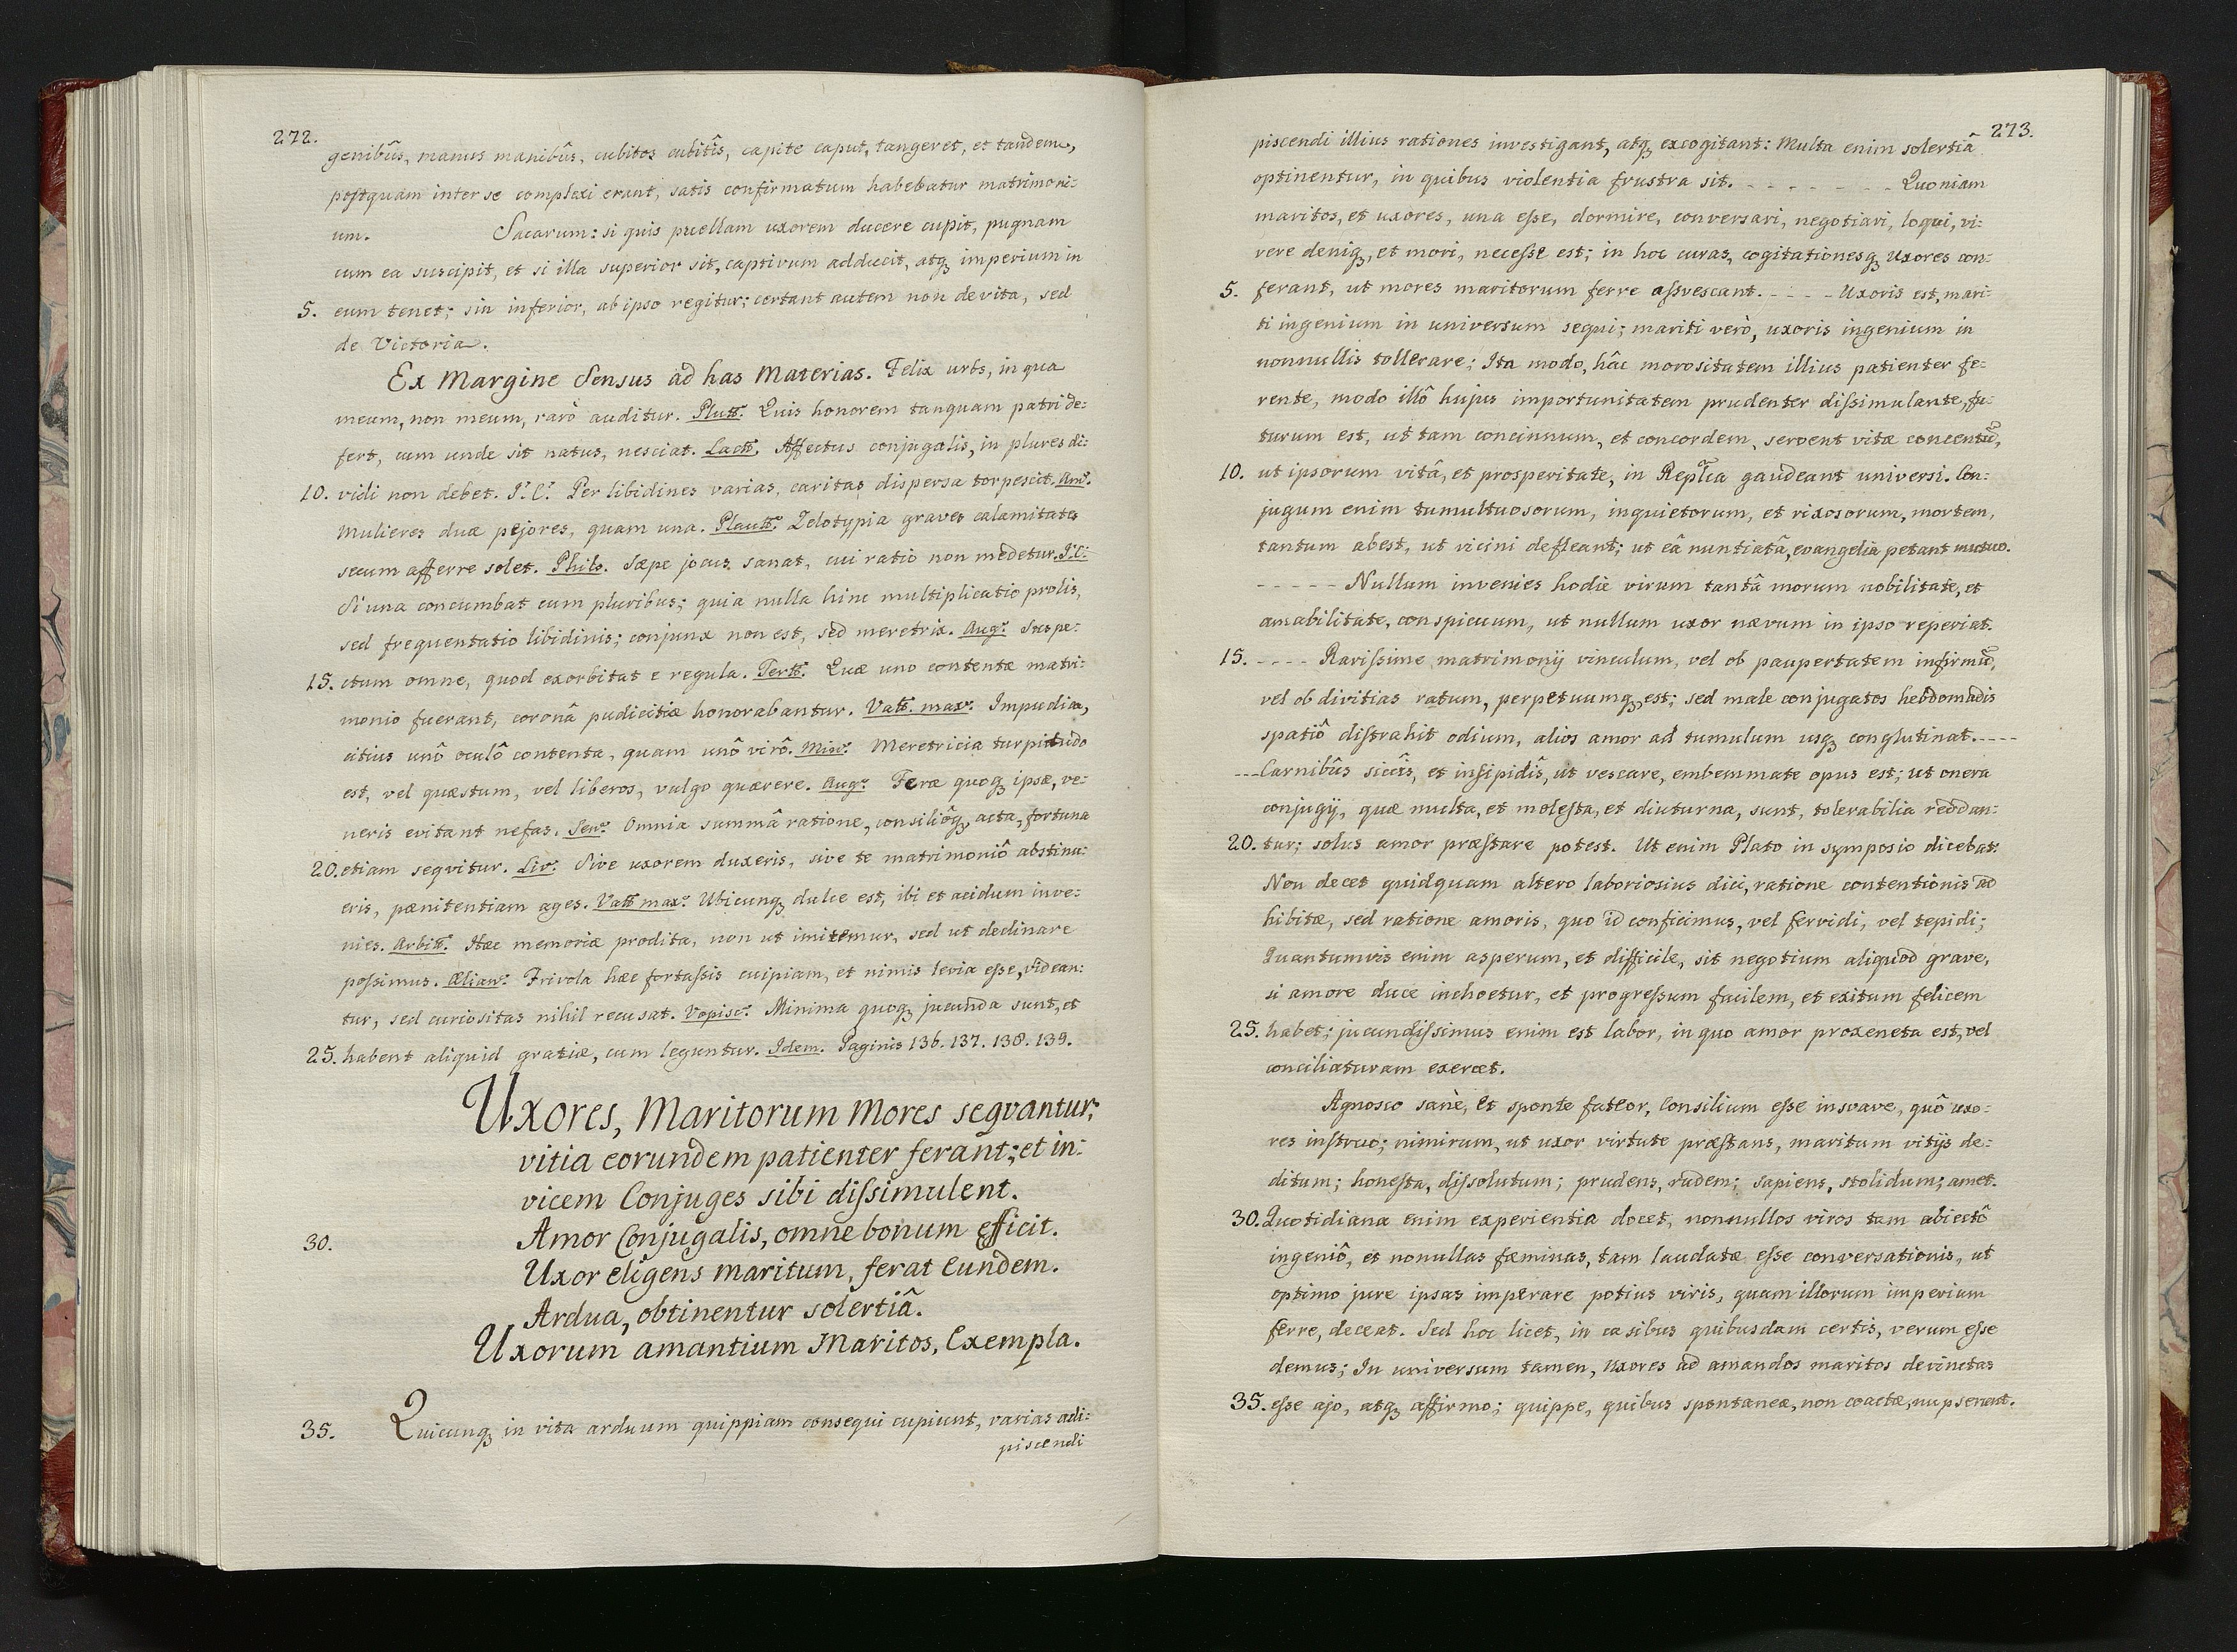 272.
genibûs, manus manibûs, cubitos cubitîs, capite caput, tangeret, et tandem,
postquam inter se complexi erant, satis confirmatum habebatur matrimoni:
um. Sacarum: si quis puellam uxorem ducere cupit, pugnam
cum ea suscipit, et si illa superior sit, captivum adducit, atq₃ imperium in
5. eum tenet; sin inferior, ab ipso regitur; certant autem non de vita, sed
de Victoria.
Ex Margine Sensus ad has Materias. Felix urbs, in qua
meum, non meum, rarò auditur. Plutt. Quis honorem tanquam patri de:
fert, cum unde sit natus, nesciat. Lactt. Affectus conjugalis, in plures di:
10. vidi non debet. J. C. Per libidines varias, caritas dispersa torpescit. Am.
Mulieres duæ pejores, quam una. Plautt. Zelotypia graves calamitates
secum afferre solet. Philo. Sæpe jocus sanat, cui ratio non medetur. J. C.
Si una concumbat cum pluribus; quia nulla hinc multiplicatio prolis,
sed frequentatio libidinis; conjunx non est, sed meretrix. Aug. Suspe:
15. ctum omne, quod exorbitat e regula. Tertt. Quæ uno contentæ matri:
monio fuerant, coronâ pudicitiæ honorabantur. Vall. max. Impudica,
citius unô oculô contenta, quam unô virô. Min. Meretricia turpitudo
est, vel quæstum, vel liberos, vulgo quærere. Aug. Feræ quoq₃ ipsæ, ve:
neris evitant nefas. Sen. Omnia summâ ratione, consiliôq₃ acta, fortuna
20. etiam seqvitur. Liv. Sive uxorem duxeris, sive te matrimoniô abstinu:
eris, pænitentiam ages. Vall max. Ubicunq₃ dulce est, ibi et acidum inve:
nies. Arbitt. Hæc memoriæ prodita, non ut imitemur, sed ut declinare
possimus. Ælian. Frivola hæc fortassis cuipiam, et nimis levia esse, videan:
tur, sed curiositas nihil recusat. Vopisc. Minima quoq₃ jucunda sunt, et
25. habent aliquid gratiæ, cum leguntur. Idem. Paginis 136. 137. 138. 139.
Uxores, Maritorum Mores seqvantur;
vitia eorundem patienter ferant; et in:
vicem Conjuges sibi dissimulent.
30. Amor Conjugalis, omne bonum efficit.
Uxor eligens maritum, ferat Eundem.
Ardua, obtinentur solertiâ.
Uxorum amantium Maritos, Exempla.
35. Quicunq₃ in vita arduum quippiam consequi cupiunt, varias adi:
piscendi
273.
piscendi illius rationes investigant, atq₃ excogitant: Multa enim solertiâ
optinentur, in quibus violentia frustra sit. - - - - - - - Quoniam
maritos, et uxores, una esse, dormire, conversari, negotiari, loqui, vi:
vere deniq₃, et mori, necesse est; in hoc curas, cogitationesq₃ Uxores con:
5. ferant, ut mores maritorum ferre assvescant. - - - - Uxoris est, mari:
ti ingenium in universum sequi; mariti verò, uxoris ingenium in
nonnullis tollerare; Ita modo, hâc morositatem illius patienter fe:
rente, modo illô hujus importunitatem prudenter dissimulante, fu:
turum est, ut tam concinnum, et concordem, servent vitæ concentū,
10. ut ipsorum vitâ, et prosperitate, in Replca gaudeant universi. Con:
jugum enim tumultuosorum, inquietorum, et rixosorum, mortem,
tantum abest, ut vicini defleant; ut eâ nuntiatâ, evangelia petant mutuo.
- - - - - Nullum invenies hodie virum tantâ morum nobilitate, et
amabilitate, conspicuum, ut nullum uxor nævum in ipso reperiat.
15. - - - - Rarissime matrimonij vinculum, vel ob paupertatem infirmū,
vel ob divitias ratum, perpetuumq₃, est; sed male conjugatos hebdomadis
spatiô distrahit odium, alios amor ad tumulum usq₃ conglutinat. - - - -
- - - Carnibûs siccîs, et insipidîs, ut vescare, embemmate opus est; ut onera
conjugij, quæ multa, et molesta, et diuturna, sunt, tolerabilia reddan:
20. tur; solus amor præstare potest. Ut enim Plato in symposio dicebat:
Non decet quidquam altero laboriosius dici, ratione contentionis ad
hibitæ, sed ratione amoris, quo id conficimus, vel fervidi, vel tepidi;
Quantumvis enim asperum, et difficile, sit negotium aliquod grave,
si amore duce inchoetur, et progressum facilem, et exitum felicem
25. habet; jucundissimus enim est labor, in quo amor proxeneta est, vel
conciliaturam exercet.
Agnosco sanè, et sponte fateor, Consilium esse insvave, quô uxo:
res instruo; nimirum, ut uxor virtute præstans, maritum vitijs de:
ditum; honesta, dissolutum; prudens, rudem; sapiens, stolidum; amet.
30. Quotidiana enim experientia docet, nonnullos viros tam abiectô
ingeniô, et nonullas fæminas, tam laudatæ esse conversationis, ut
optimo jure ipsas imperare potius viris, quam illorum imperium
ferre, deceat. Sed hoc licet, in casibus quibusdam certis, verum esse
demus; In universum tamen, uxores ad amandos maritos devinctas
35. esse ajo, atq₃ affirmo; quippe, quibus spontaneæ, non coactæ, nupserunt.